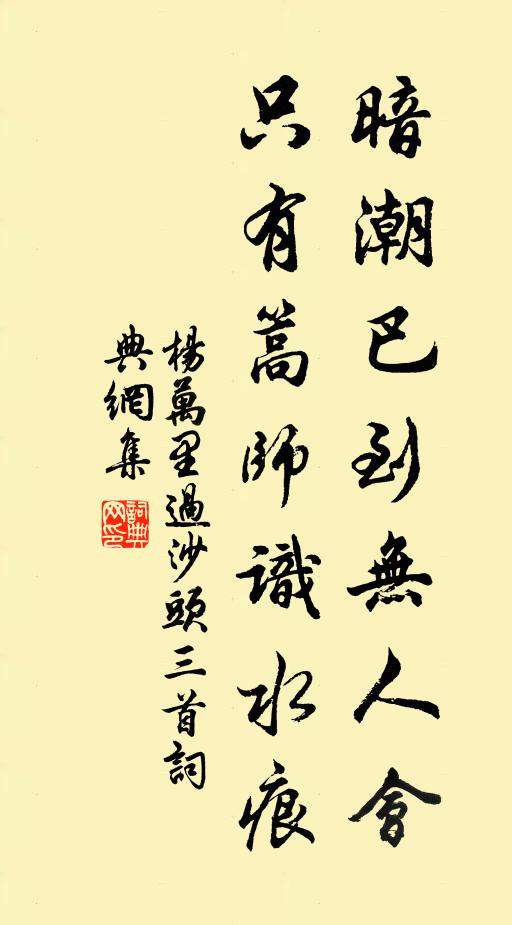 暗潮已到無人會
只有篙師識水痕
楊萬里過沙頭三首詞
典網集
詞典
网印